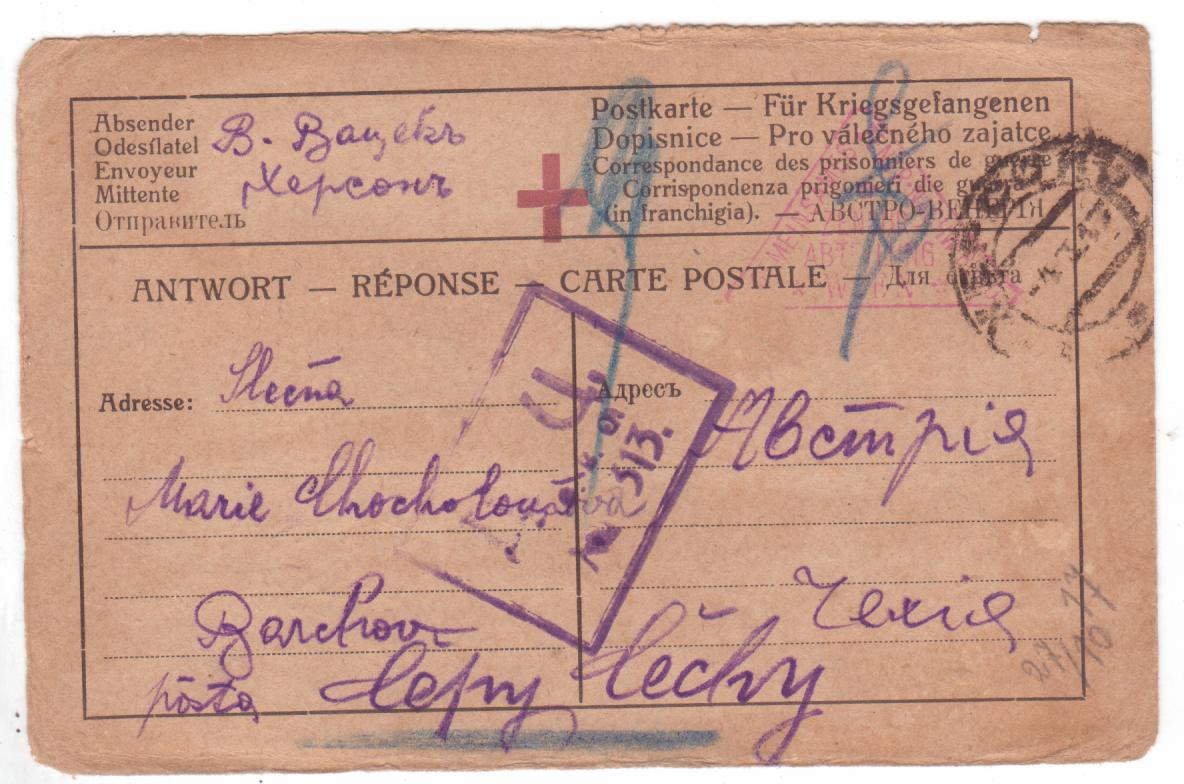 Absender
Odesílatel
Envoyeur
Mittente
Отправитель
В. Вацекъ
Херсонъ
Postkarte — Für Kriegsgefangenen
Dopisnice — Pro válečného zajatce
Correspondance des prisonniers de guerre
Corrispondenza prigonieri die guerra
(in franchigia). — АВСТРО-ВЕНГРІЯ
ANTWORT — RÉPONSE — CARTE POSTALE — Для отвѣта
Adresse: Slečna
Marie Chocholová
Barchov
pošta Cepy Čechy
Адресъ
Австрія
Чехія
Ц
513.
27/10 17